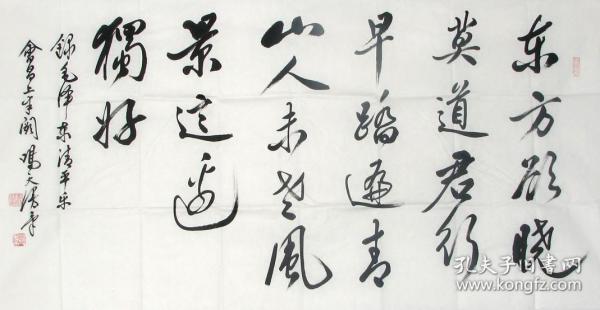 东方欲晓
莫道君行
早踏遍青
山人未老風
景这边
獨好
録毛泽东清平乐
會昌上半阕
孔夫子旧书网
www.kongfz.com